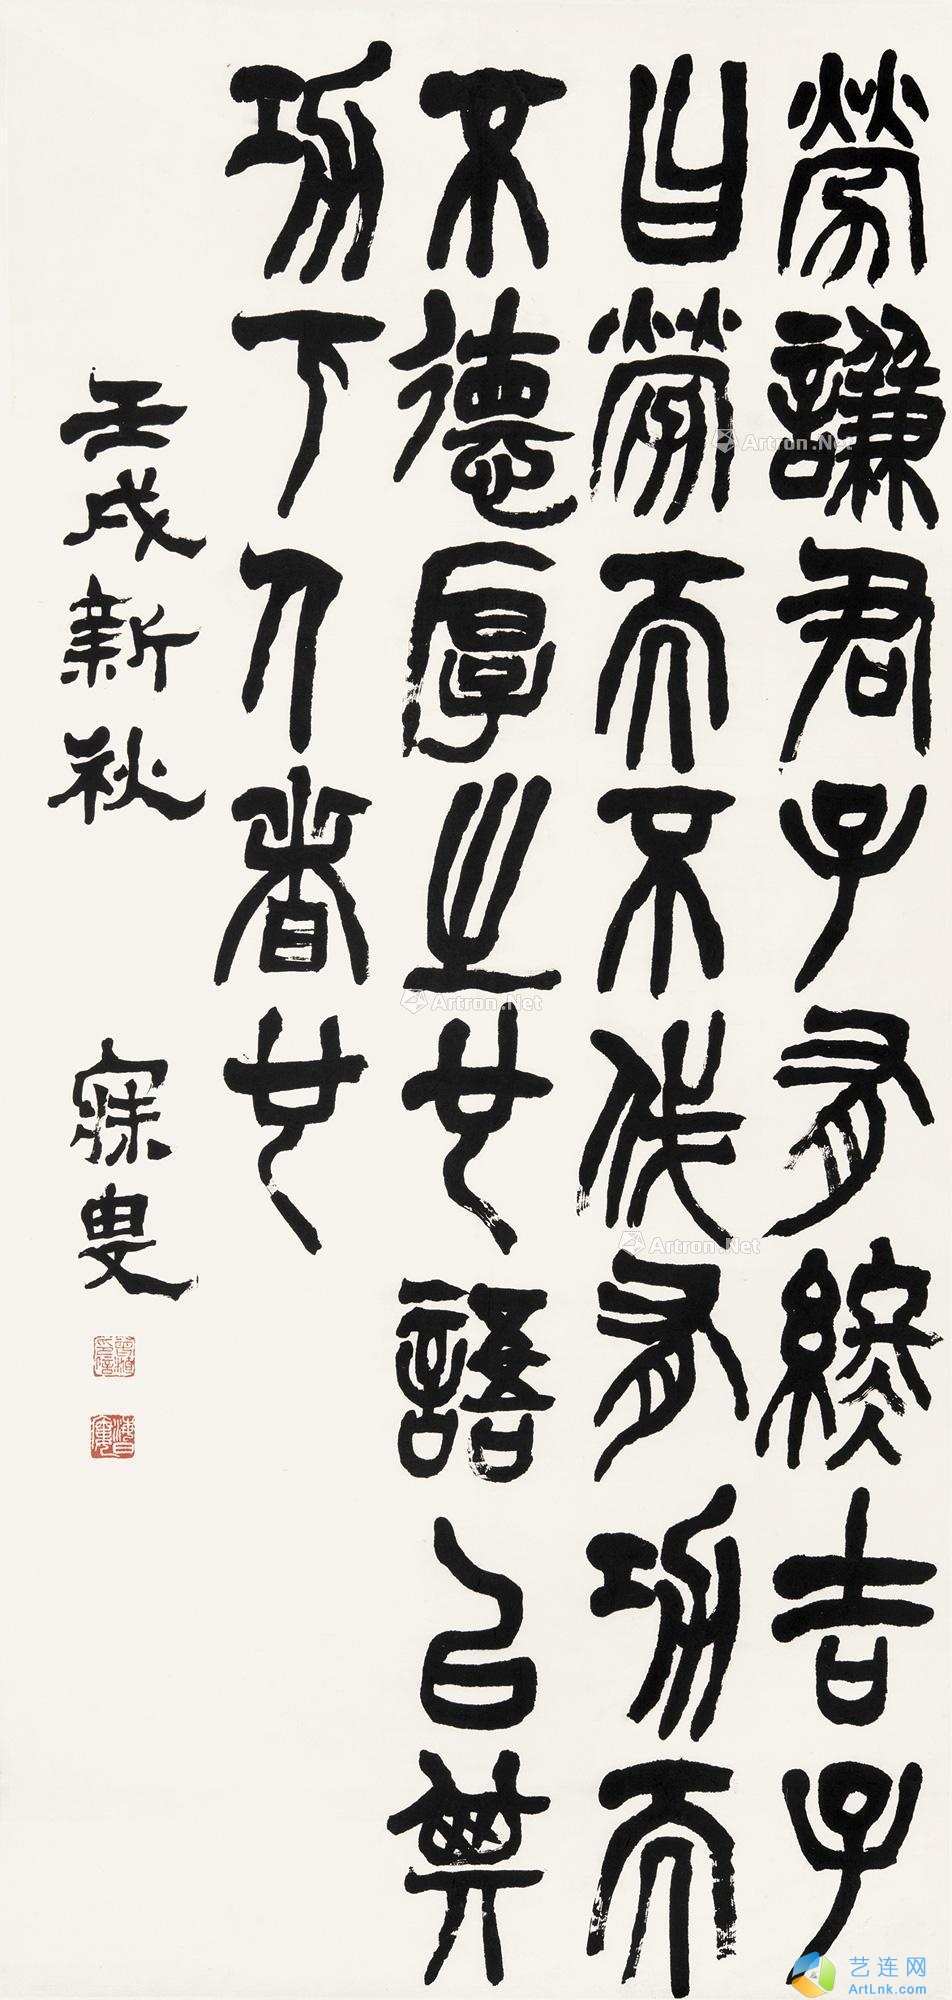 勞謙君子有終吉子
曰勞而不伐有功而
不德厚之也語㠯其
功下人者也
壬戌新秋 寐叟
海日廔
Artron.Net
Artron.Net
Artron.Net
艺连网
ArtLnk.com